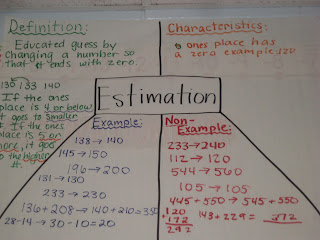 Definition:
Educated guess by
changing a number so
that it ends with zero.
130 133 140
If the ones
place is 4 or below
it goes to smaller
#. If the ones
place is 5 or
more, it goes
to the higher
#.
Characteristics:
ones place has
a zero example: 120
Estimation
Example:
138 → 140
145 → 150
196 → 200
131 → 130
233 → 230
136 + 208 → 140 + 210 = 350
28-14 → 30-10=20
Non-
Example:
233 → 240
112 → 120
544 → 560
105 → 105
445 + 550 → 545 + 550
120
+172
292
143 + 229 = 372